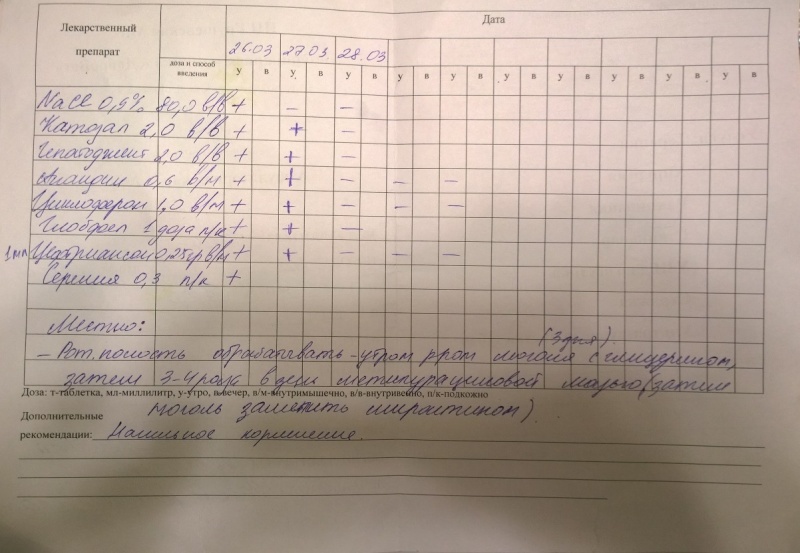 Лекарственный препарат доза и способ введения Дата
26.03 27.03 28.03
у в у в у в у в у в у в у в у в у в
NaCl 0,9% 80,0 в/в + – –
Катозал 2,0 в/в + + –
Гепатоджект 2,0 в/в + + –
Анандин 0,6 в/м + + – – –
Циклоферон 1,0 в/м + + – – –
Глобфел 1 доза п/к + + –
1мл Цефтриаксон 0,25гр в/м + + – – –
Серения 0,3 п/к +
Местно:
(3 дня).
– Рот. полость обрабатывать – утром р-ром люголя с глицерином,
затем 3-4 раза в день метилурациловой мазью (затем
Доза: т-таблетка, мл-миллилитр, у-утро, в-вечер, в/м-внутримышечно, в/в-внутривенно, п/к-подкожно
люголь заменить
Дополнительные
рекомендации: кормление.